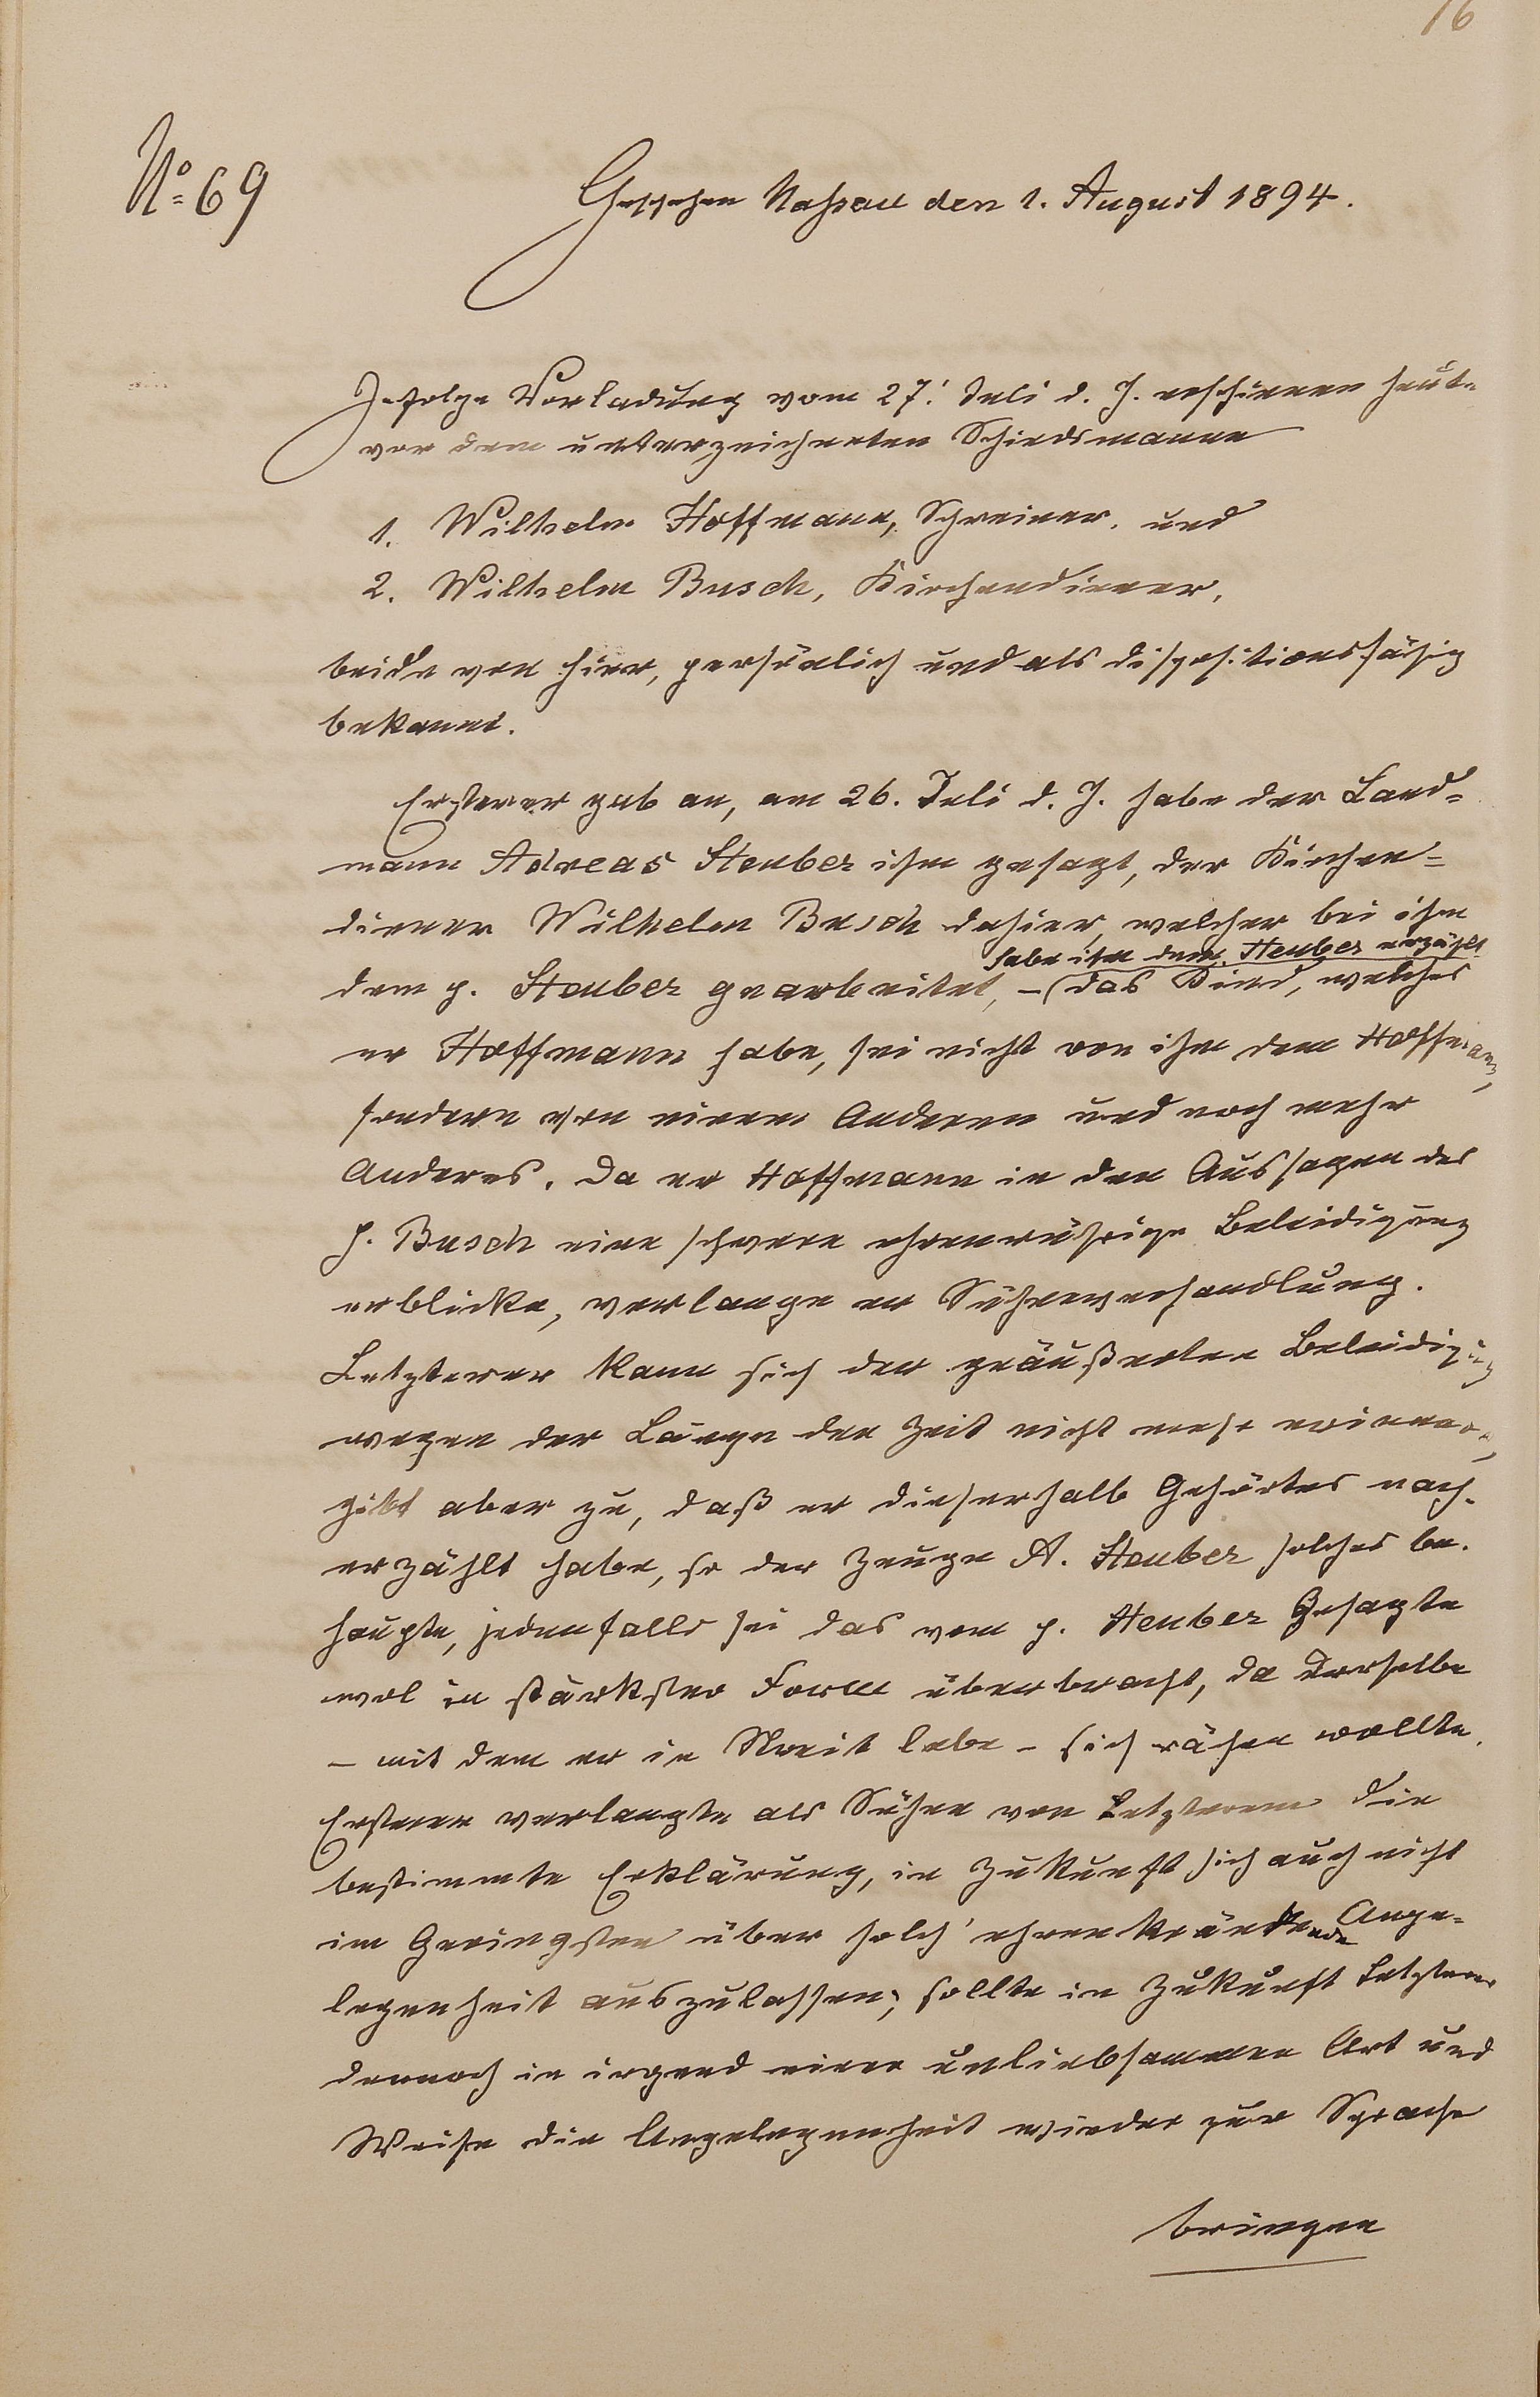 16
No 69
Geschehen Nassau den 1. August 1894.
Infolge Vorladung vom 27. Juli d. J. erschienen heute
vor dem unterzeichneten Schiedsmanne
1. Wilhelm Hoffmann, Schreiner, und
2. Wilhelm Busch, Kirchendiener,
beide von hier, persönlich und als dispositionsfähig
bekannt.
Ersterer gab an, am 26. Juli d. J. habe der Land-
mann Adreas Steuber ihm gesagt, der Kirchen-
diener Wilhelm Busch dahier, welcher bei ihm
habe ihm dem Steuber erzählt
dem p. Steuber gearbeitet, – das Kind, welches
er Hoffmann habe, sei nicht von ihm dem Hoffmann,
sondern von einem Anderen und noch mehr
Anderes. Da er Hoffmann in den Aussagen des
p. Busch eine schwere ehrenrührige Beleidigung
erblicke, verlange er Sühneverhandlung.
Letzterer kann sich der geäußerten Beleidigung
wegen der Länge der Zeit nicht mehr erinnern,
gibt aber zu, daß er dieserhalb Gehörtes nach-
erzählt habe, so der Zeuge A. Steuber solches be-
haupte, jedenfalls sei das vom p. Steuber Gesagte
wol in stärkster Form überbracht, da derselbe
– mit dem er in Streit lebe – sich rächen wollte.
Ersterer verlangte als Sühne von Letzterem die
bestimmte Erklärung, in Zukunft sich auch nicht
im Geringsten über solch' ehrenkränkende Ange-
legenheit auszulassen; sollte in Zukunft Letzterer
dennoch in irgend einer unliebsammen Art und
Weise die Angelegenheit wieder zur Sprache
bringen